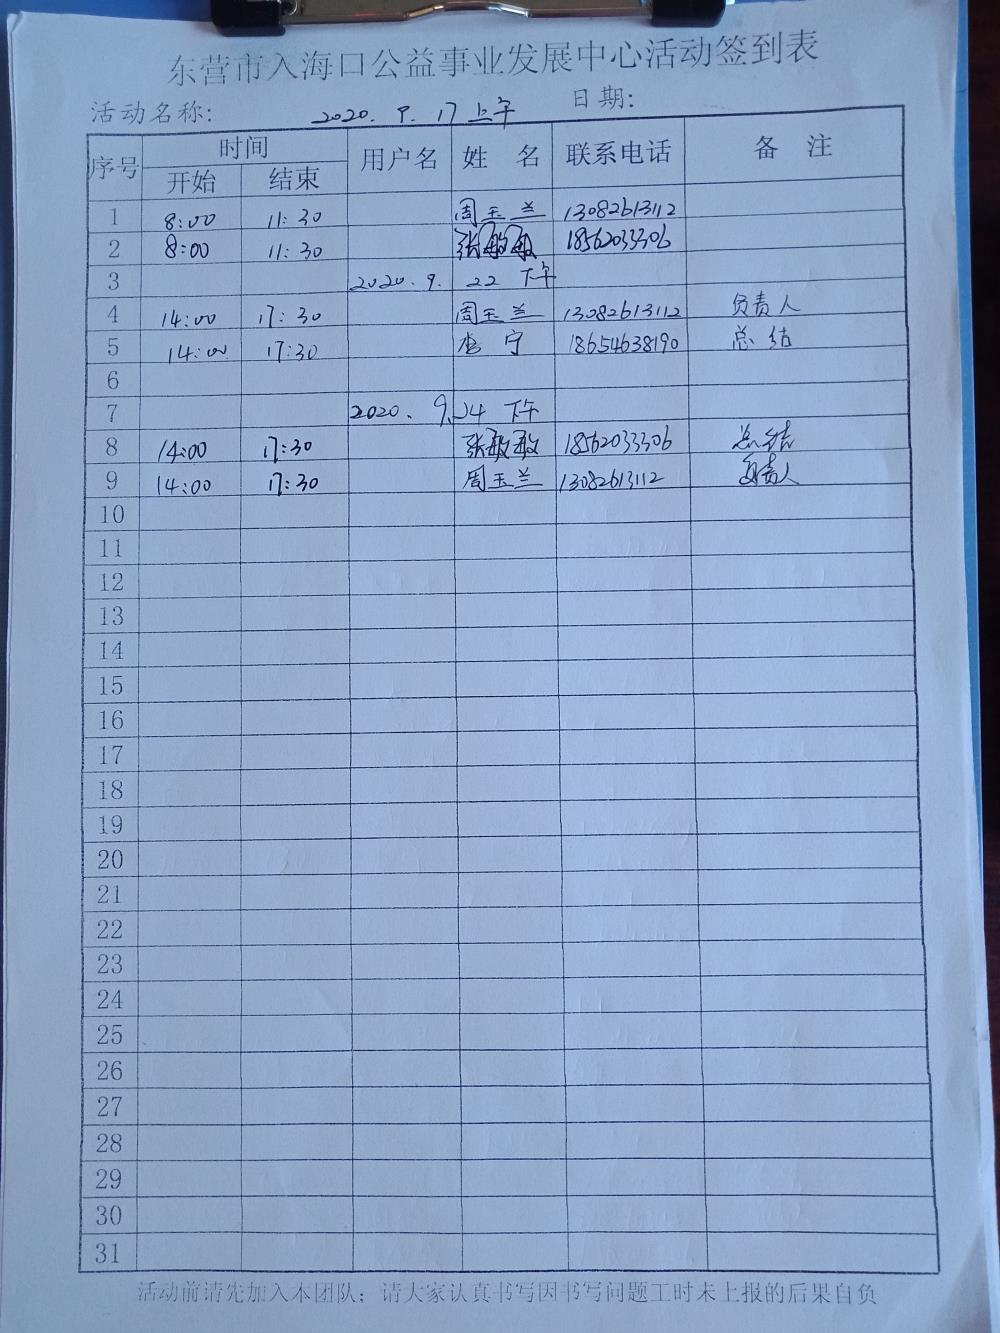 东营市入海口公益事业发展中心活动签到表
活动名称: 2020. 9. 17 上午 日期:
序号 时间 用户名 姓 名 联系电话 备 注
开始 结束
1 8:00 11:30 周玉兰 13082613112
2 8:00 11:30 张敏敏 18562033306
3 2020. 9. 22 下午
4 14:00 17:30 周玉兰 13082613112 负责人
5 14:00 17:30 李宁 18654638190 总结
6
7 2020. 9. 24 下午
8 14:00 17:30 张敏敏 18562033306 总结
9 14:00 17:30 周玉兰 13082613112 负责人
10
11
12
13
14
15
16
17
18
19
20
21
22
23
24
25
26
27
28
29
30
31
活动前请先加入本团队；请大家认真书写因书写问题工时未上报的后果自负